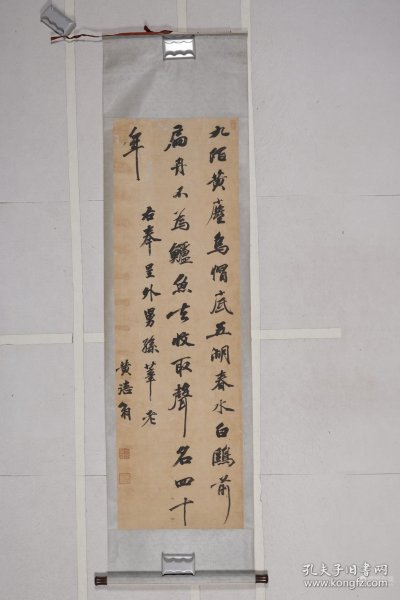 九陌黄塵烏帽底五湖春水白鷗前
扁舟不為鱸魚去收取聲名四十
年
右奉呈外舅孫莘老
黄涪翁
孔夫子旧书网
www.kongfz.com